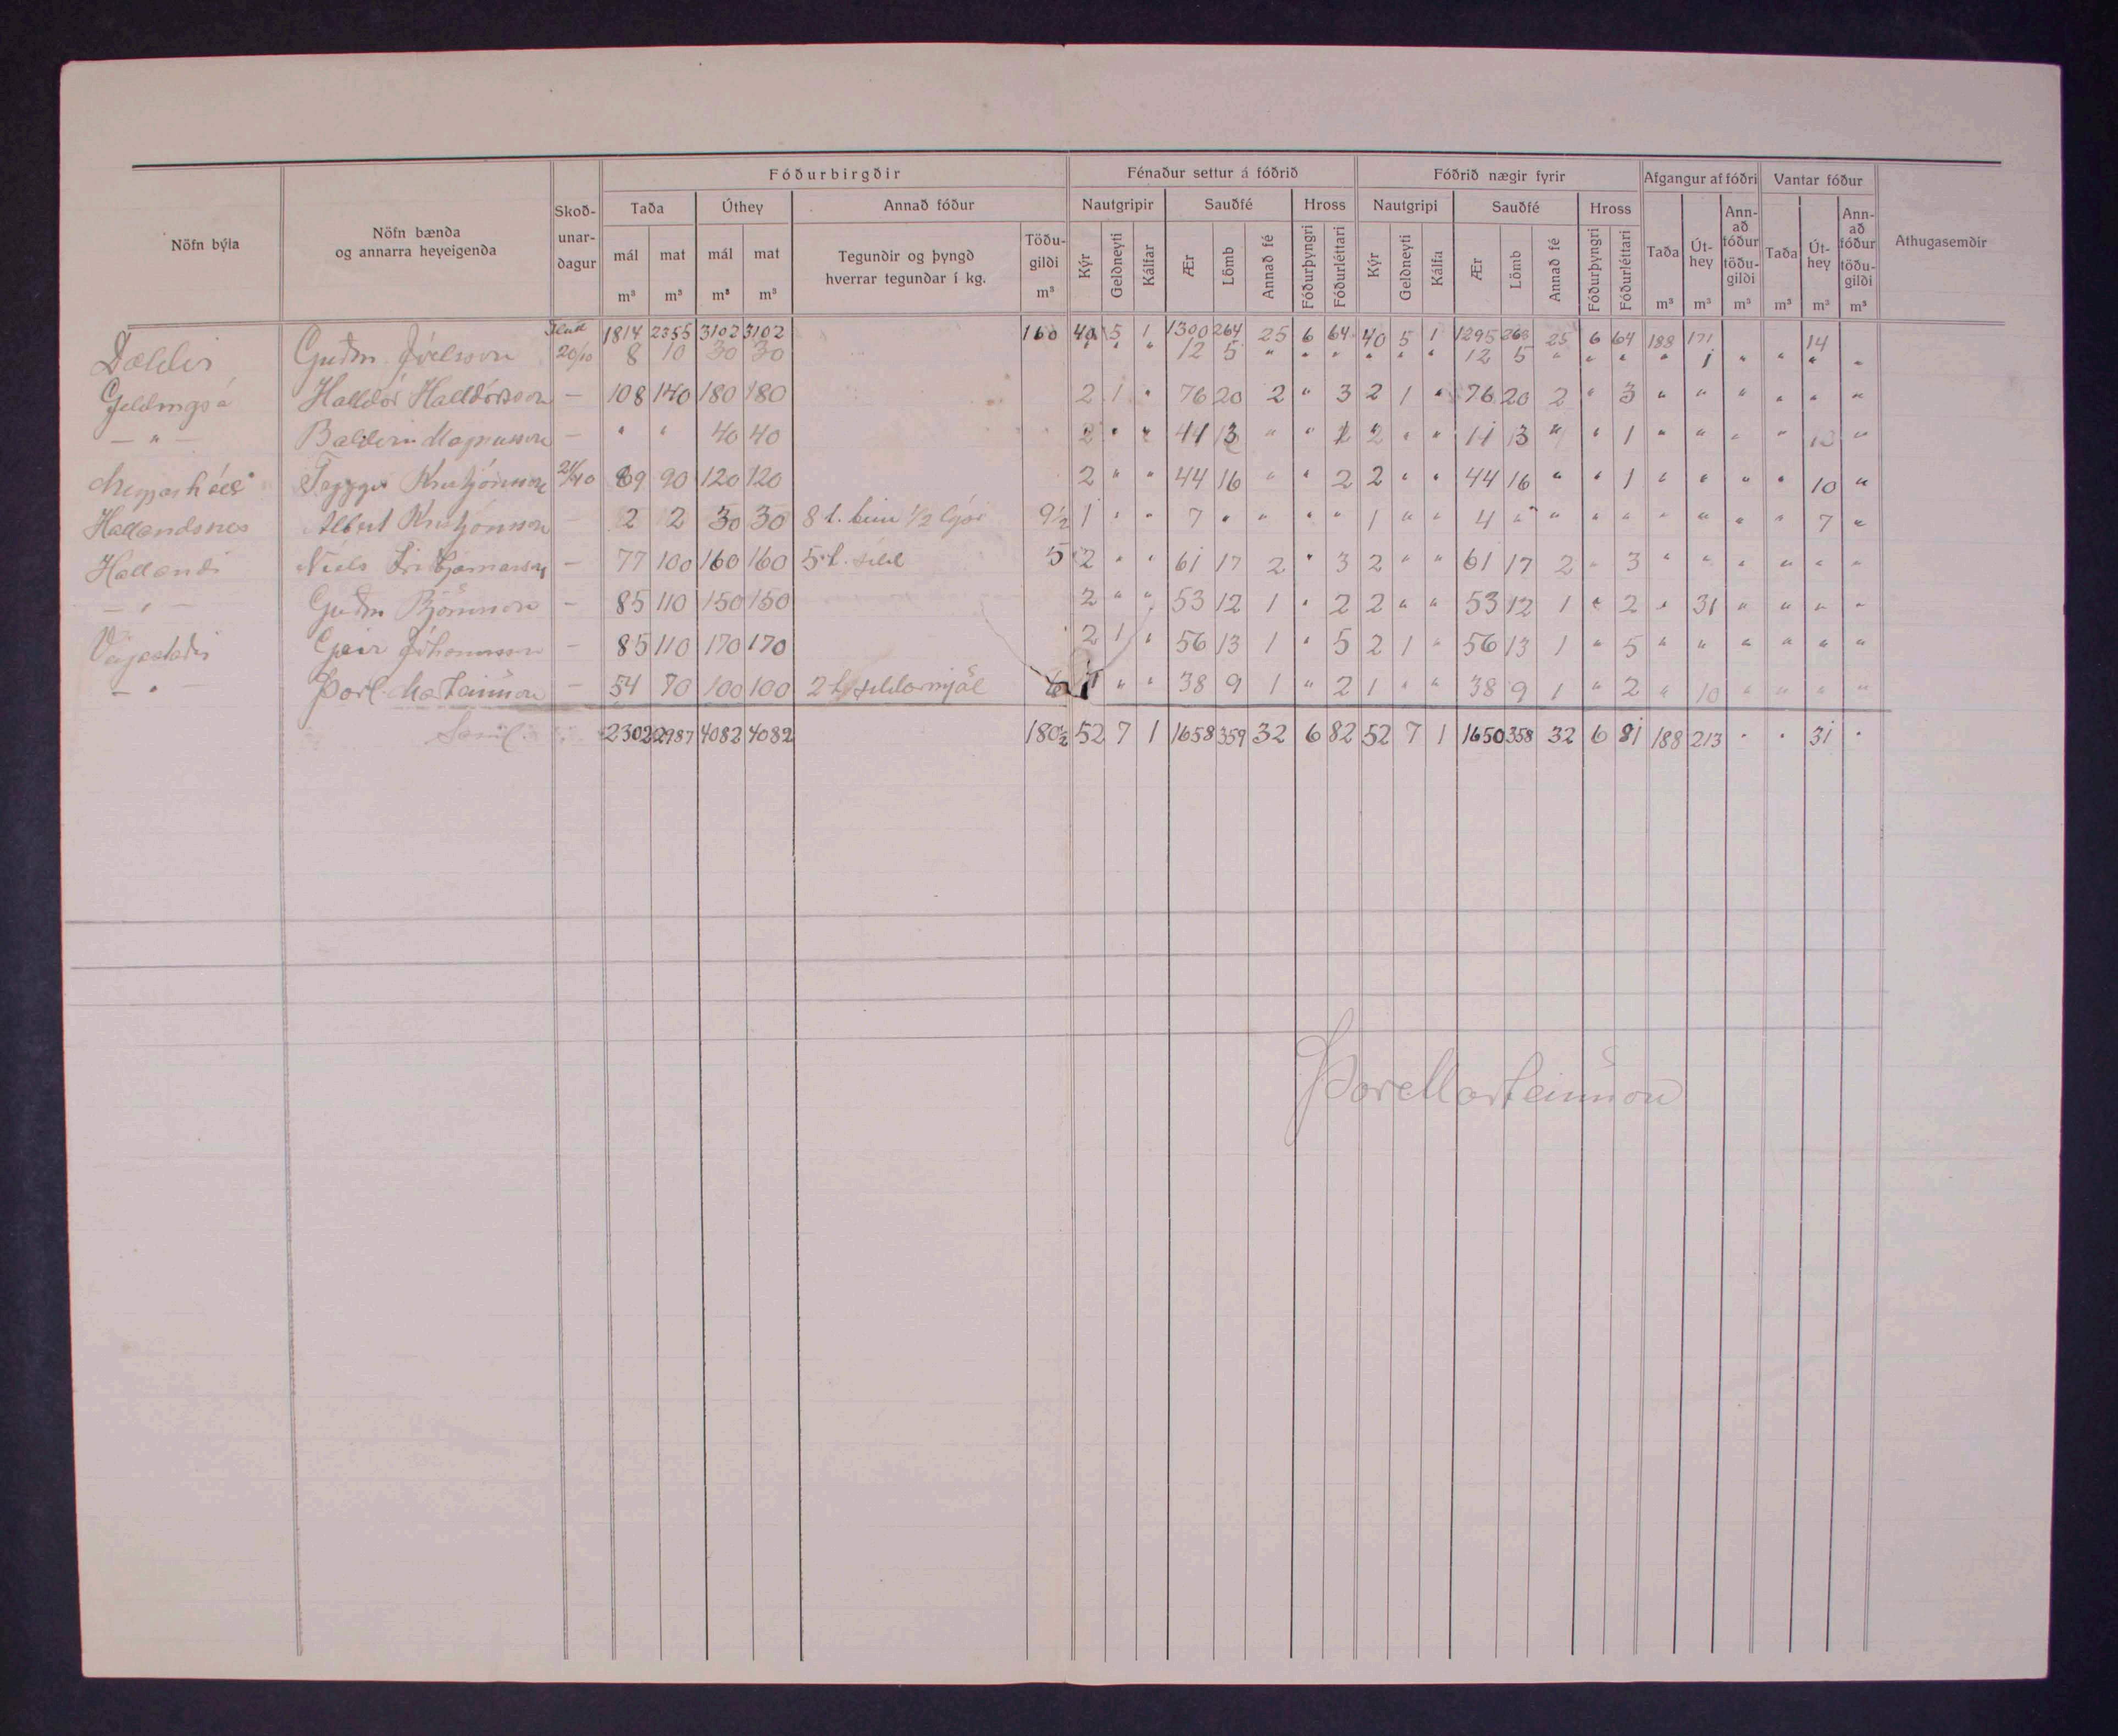 Fóðurbirgðir Fénaður settur á fóðrið Fóðrið nægir fyrir Afgangur af fóðri Vantar fóður
Nöfn býla Nöfn bænda og annarra heyeigenda Skoð-unar-dagur Taða Úthey Annað fóður Nautgripir Sauðfé Hross Nautgripi Sauðfé Hross Taða Út-hey Ann-að fóður töðu-gildi Taða Út-hey Ann-að fóður töðu-gildi Athugasemdir
mál mat mál mat Tegundir og þyngd hverrar tegundar í kg. Töðu-gildi Kýr Geldneyti Kálfar Ær Lömb Annað fé Fóðurþyngri Fóðurléttari Kýr Geldneyti Kálfa Ær Lömb Annað fé Fóðurþyngri Fóðurléttari
m³ m³ m³ m³ m³ m³ m³ m³ m³ m³ m³
1814 2355 3102 3102 160 40 5 1 1300 264 25 6 64 40 5 1 1295 263 25 6 64 188 171 14
Dældir Guðm. Jóelsson 20/10 8 10 30 30 " " " 12 5 " " " " " " 12 5 " " " " 1 " " " "
Geldingsá Halldór Halldórsson — 108 140 180 180 2 1 " 76 20 2 " 3 2 1 " 76 20 2 " 3 " " " " " "
— " — Baldvin Magnusson — " " 40 40 2 " " 13 " " 2 " " 11 13 " " 1 " " " " 10 "
Tryggvi Kristjónsson 21/10 69 90 120 120 2 " " 44 16 " " 2 2 " " 44 16 " " 1 " " " " 10 "
Hallandsnes Albert Kristjónsson — 2 2 30 30 8 t. 1/2 9½ 1 " " 7 " " " " 1 " " 4 " " " " " " " " 7 "
Hallandi Níels Friðbjarnarson — 77 100 160 160 5 t. síld 5 2 " " 61 17 2 " 3 2 " " 61 17 2 " 3 " " " " " "
— " — Guðm Björnsson — 85 110 150 150 2 " " 53 12 1 " 2 2 " " 53 12 1 " 2 " 31 " " " "
Geir Jóhannsson — 85 110 170 170 2 1 " 56 13 1 " 5 2 1 " 56 13 1 " 5 " " " " " "
— " — Þorl Marteinsson — 54 70 100 100 2 t síldarmjöl 1 " " 38 9 1 " 2 1 " " 38 9 1 " 2 " 10 " " " "
Saml. 2302 2987 4082 4082 180½ 52 7 1 1658 359 32 6 82 52 7 1 1650 358 32 6 81 188 213 " " 31 "
Þorl Marteinsson